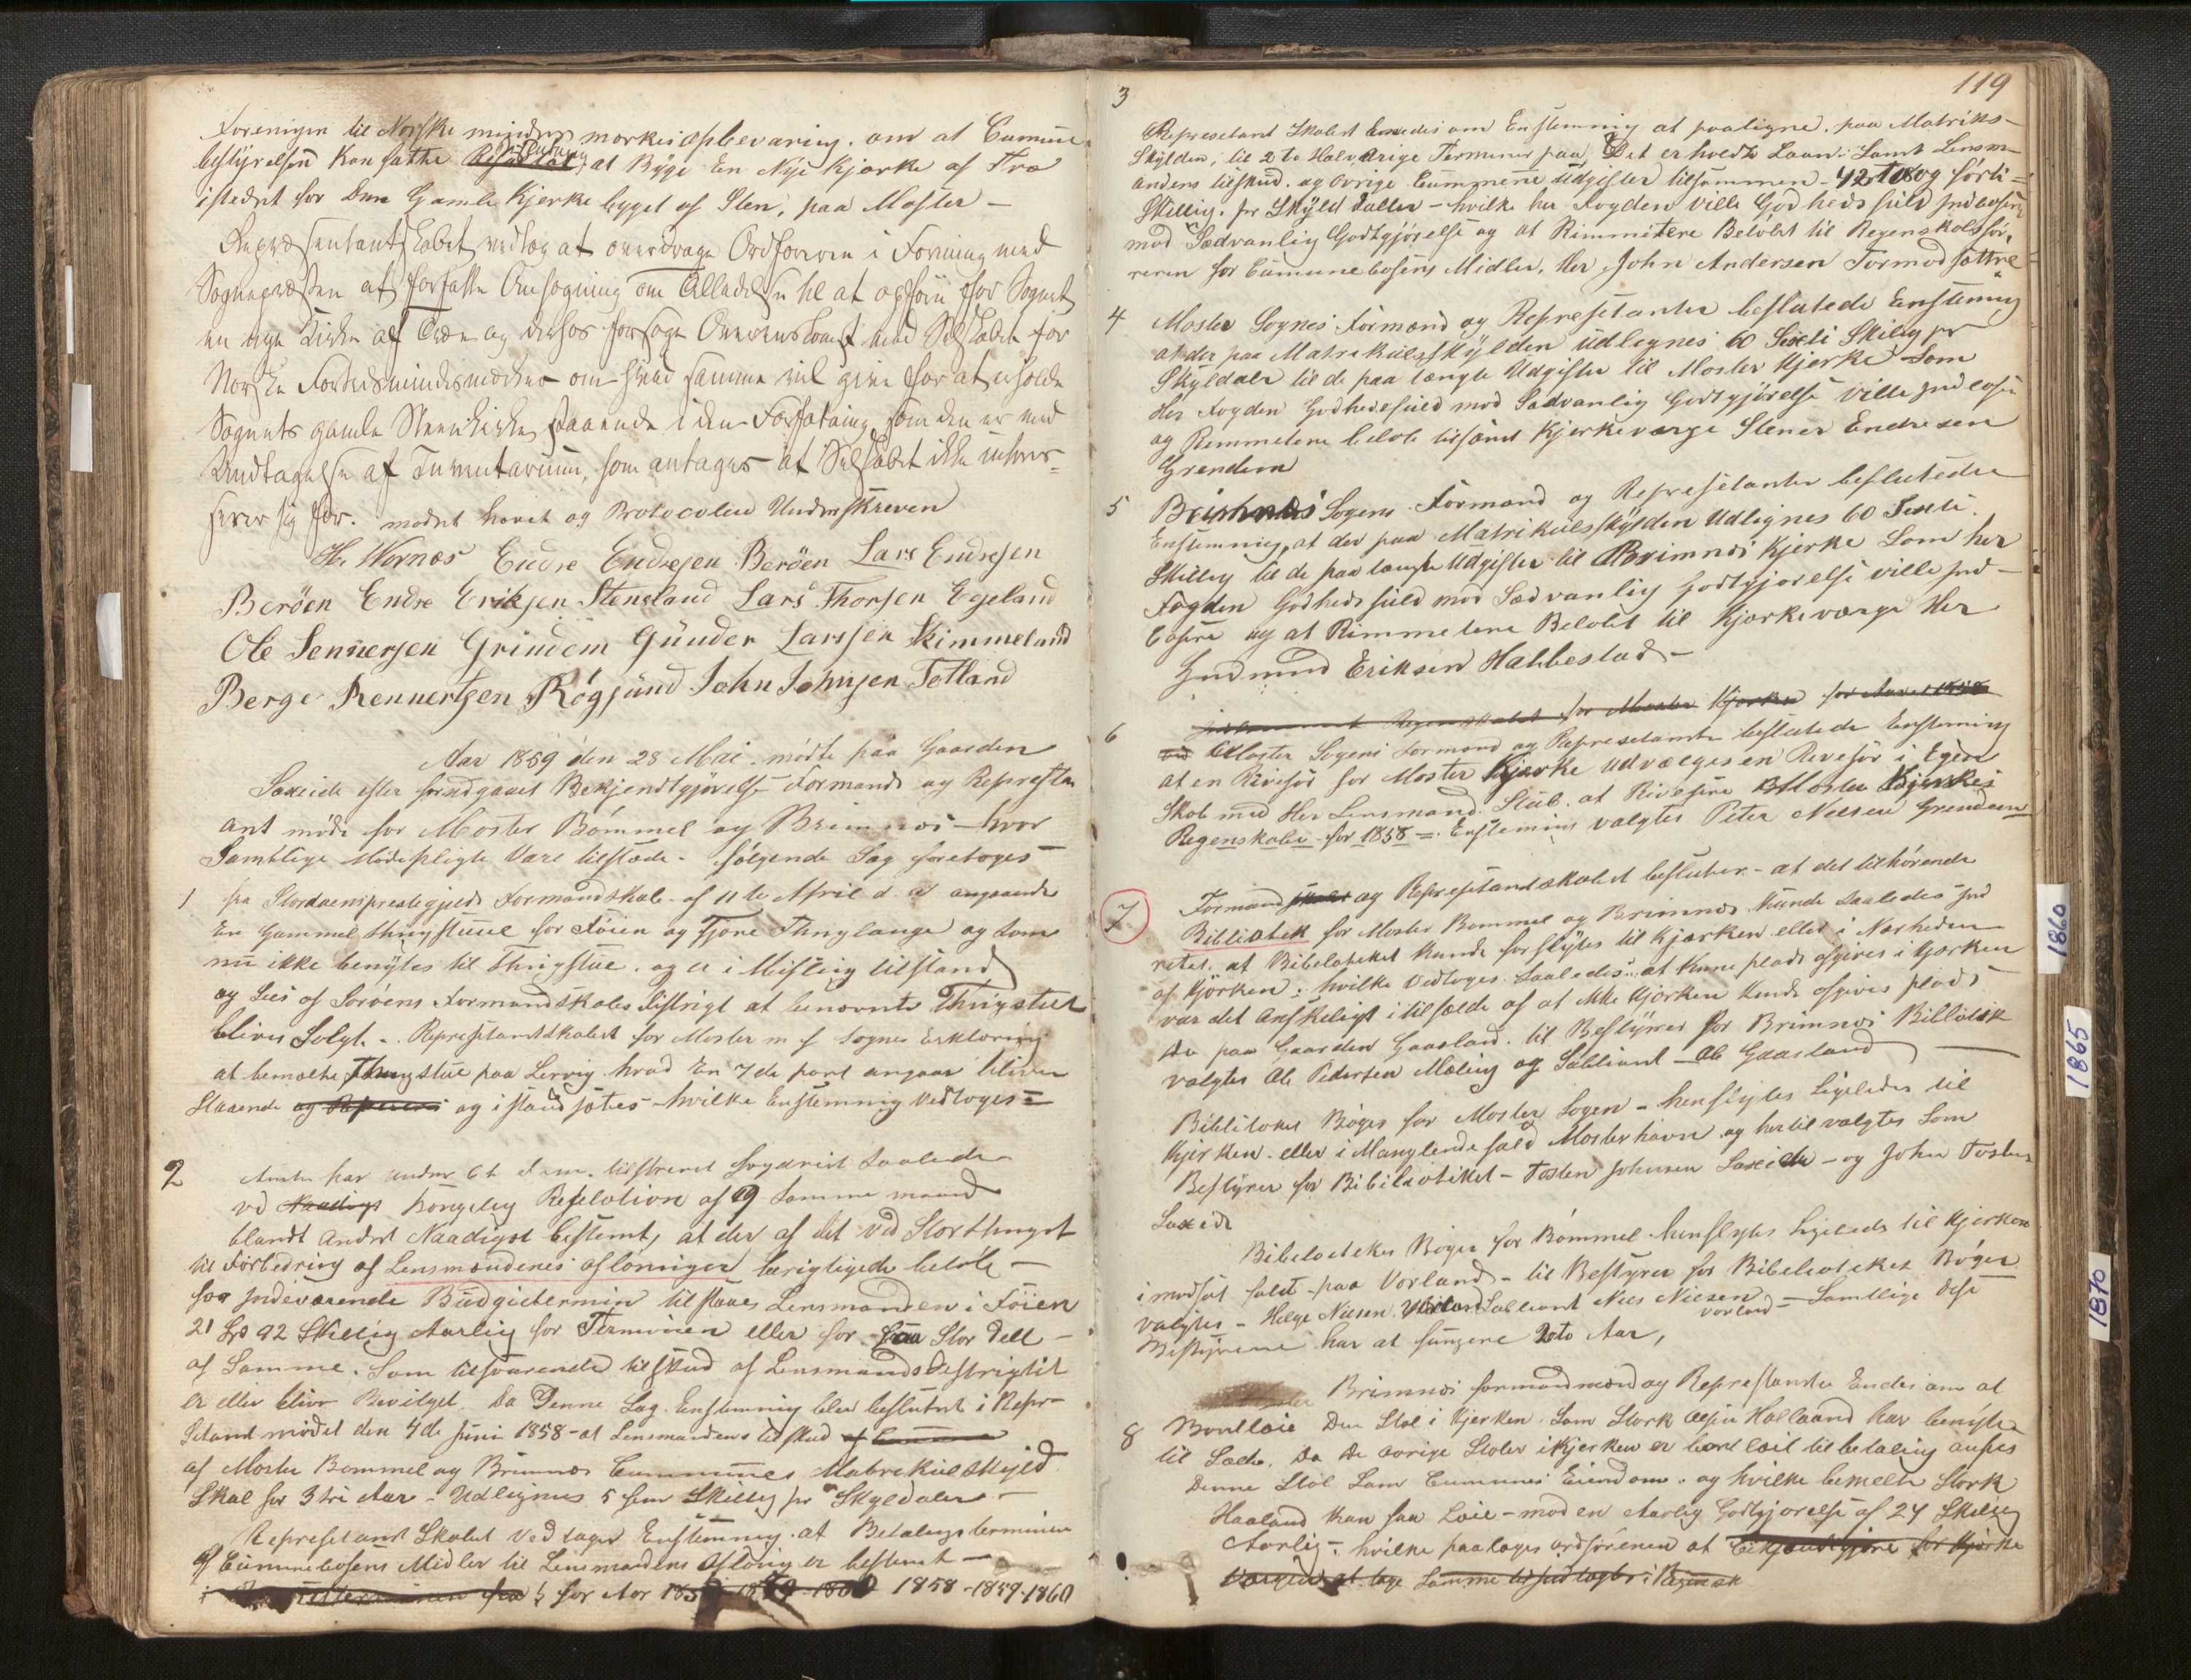 Foreningen til Norske mindes mærkes opbevaring. om at Comune
bestyrelsen Kan fatte Beslutning at Byge En Nye Kjærke af Træ
istedet for Den Gamle Kjerke byget af Sten, paa Moster –
Repræsentantskabet vedtog at overdrage Ordføreren i Forening med
Sognepræsten at forfatte Ansøgning om Tilladelse til at opføre for Sognet
en nye Kirke af Træ og derhos forsøge Overenskomst med Selskabet for
Norske Fortidsmindesmærker om hvad samme vil give for at erholde
Sognets gamle Steenkirke staaende i den Forfatning som den er med
Undtagelse af Inventarium, som antages at Selskabet ikke interes=
serer sig for. mødet hævet og Protocolen Underskreven
H. Wernæs Endre Endresen Berøen Lars Endresen
Berøen Endre Eriksen Stensland Lars Thorsen Egeland
Ole Sennersen Grindem Gunder Larssen Skimmeland
Berge Rennertsen Røgsund John Johnsen Totland
Aar 1859 den 28 Mai. mødte paa Gaarden
Sæxeide efter forudgaaet Bekjendtgjørelse Formands og Represetan
ant møde for Moster Bømmel og Brimnes – hvor
Samtlige Mødepligte Vare tilstæde – følgende Sag foretoges
1 fra Stordøens prestegjelds Formandskab af 11te April d. a. angaaende
En Gammel thingstuue for Føien og Fjere Thinglauge og som
nu ikke benyttes til Thingstue. og er i Misslig tilstand
og Sees af Sorøens Formandskabs Distrigt at benævnte Thingstue
blives Solgt. – Represetantskabet for Moster m f Sogne Erklæring
at bemælte Thingstue paa Lervig hvad En 7de part angaar bliver
Staaende og i stand sættes – hvilke Enstemmig Vedtoges =
2 Amtet har under 6te d. m. tilskrevet fogderiet saaledes
ved Naadigst Kongelig Resolution af 9 Samme maaned
blandt Andet Naadigst bestemt, at der af det ved Storthinget
til Forbedring af Lensmændenes aflønninger bevigtigede beløb –
for Indeværende Budgettermin tilstaaes Lensmanden i Føien
21 Sp 92 Skillig Aarlig for Terminen eller for saa Stor Dell –
af Samme. Som tilsvarende tilskud af Lensmands Destrigtet
er eller blive Bevilget. Da Denne Sag Enstemmig blev besluttet i Repre-
setant mødet den 4de Juni 1858 – at Lensmandens tilskud
af Moster Bømmel og Brimnes Cummunes Matrekuleskyld
Skal for 3 tre Aar – Udlignes 5 fem Skillig pr Skyldaler –
Represetant Skabet Vedtager Enstemmig at Betalings terminen
af Cummunekasens Midler til Lensmandens Afløning er bestemt –
for Aar 1858-1859-1860
119
3 Represetant Skabet Enedes om Enstemmig at paaligne paa Matrikul-
Skylden, til 2 to Halv Aarige Terminer paa Det erholdte Laan – Samt Lensm-
andens tilskud og øvrige Cummune udgifter tilsammen – 42 to og førti=
Skillig. pr Skyld Daller – hvilke her Fogden ville Godheds fuld Indkasere
mod Sædvanlig Godtgjørelse og at Rimmitere Beløbet til Regenskabsfø-
reren for Cumunekasens Midler, Her John Andersen Tormodsættre
4 Moster Sognes Formænd og Represetanter besluttede Enstemmig
at der paa Matrikulsskylden udlignes 60 Sexti Skillig pr
Skyldaler til de paa længte Udgifter til Moster Kjerke Som
Her Fogden Godhedsfuld mod Sædvanlig Godtgjørelse ville Indkasere
og Remmetere beløbet tilsamt Kjerkeværge Stener Endresen
Grendem
5 Brimnæs Sogens Formænd og Represetanter besluttede
Enstemmig, at der paa Matrikulsskylden Udlignes 60 Sexti.
Skillig til de paa længte Udgifter til Brimnes Kjerke Som her
Fogden Godheds fuld mod Sædvanlig Godtgjørelse ville Ind-
Casere og at Rimmetere Beløbet til Kjerkeværge Her
Gudmund Eriksen Habbestad –
for Moster Kjærke for Aaret 1858
6 Moster Sogens Formænd og Represetanter besluttede Enstemmig
at en Revesør for Moster Kjærke udvælges en Revesør i Egen
Skab med Her Lensmand Stub. at Rivesere Moster Kjerkes
Regenskaber for 1858 =. Enstemmig valgtes Peter Nielsen Grendem
7 Formand og Represetantskabet beslutter – at det tilhørende
Bibliotek for Moster Bømmel og Brimnes Kunde saaledes Ind
retes, at Bibeloteket kunde forflyttes til Kjærken eller i Nærheden
af Kjørken; hvilke Vedtoges Saaledes: at Kunne plads afgives i Kjærken
var det Ønskeligt i tilfælde af at ikke Kjærken kunde afgives plads
Da paa Gaarden Gaasland. til Bestyrer for Brimnes Billotek
valgtes Ole Pedersen Mæling og Subliant – Ole Gaasland
Biblitekes Bøger for Moster Sogen – henflyttes Ligeledes til
Kjerken eller i Manglende fald Mosterhavn og hertil valgtes Som
Bestyrer for Bibiliotiket – Tosten Johnsen Sæxeide – og John Tosten
Sæxeide
Bibeloteks Bøger for Bømmel henflyttes ligeleds til Kjerken
i modsat fald paa Vorland – til Bestyrer for Bibelioteket Bøger
valgtes – Helge Nielsen Vorland Subleant Niels Nielsen Vorland – Samtlige disse
Bestyrere har at fungere 2 to Aar,
Brimnes formandmænd og Represetanter Enedes om at
8 Bortleie Den Stol i Kjerken Som Størk Olsen Halland har benyttet
til Sæde. Da De øvrige Stoler i Kjerken er bortleiet til betaling ansees
Denne Stol Som Cumunes Eiendom. og hvilke bemelte Størk
Haaland Kan faa Leie – mod en Aarlig Godtgjørelse af 24 Skilling
Aarlig – hvilke paalages ordføreren at bekjendtgjøre for Kjerke
værgen at tage Samme til Indtægt i Regensk
1860
1865
1870